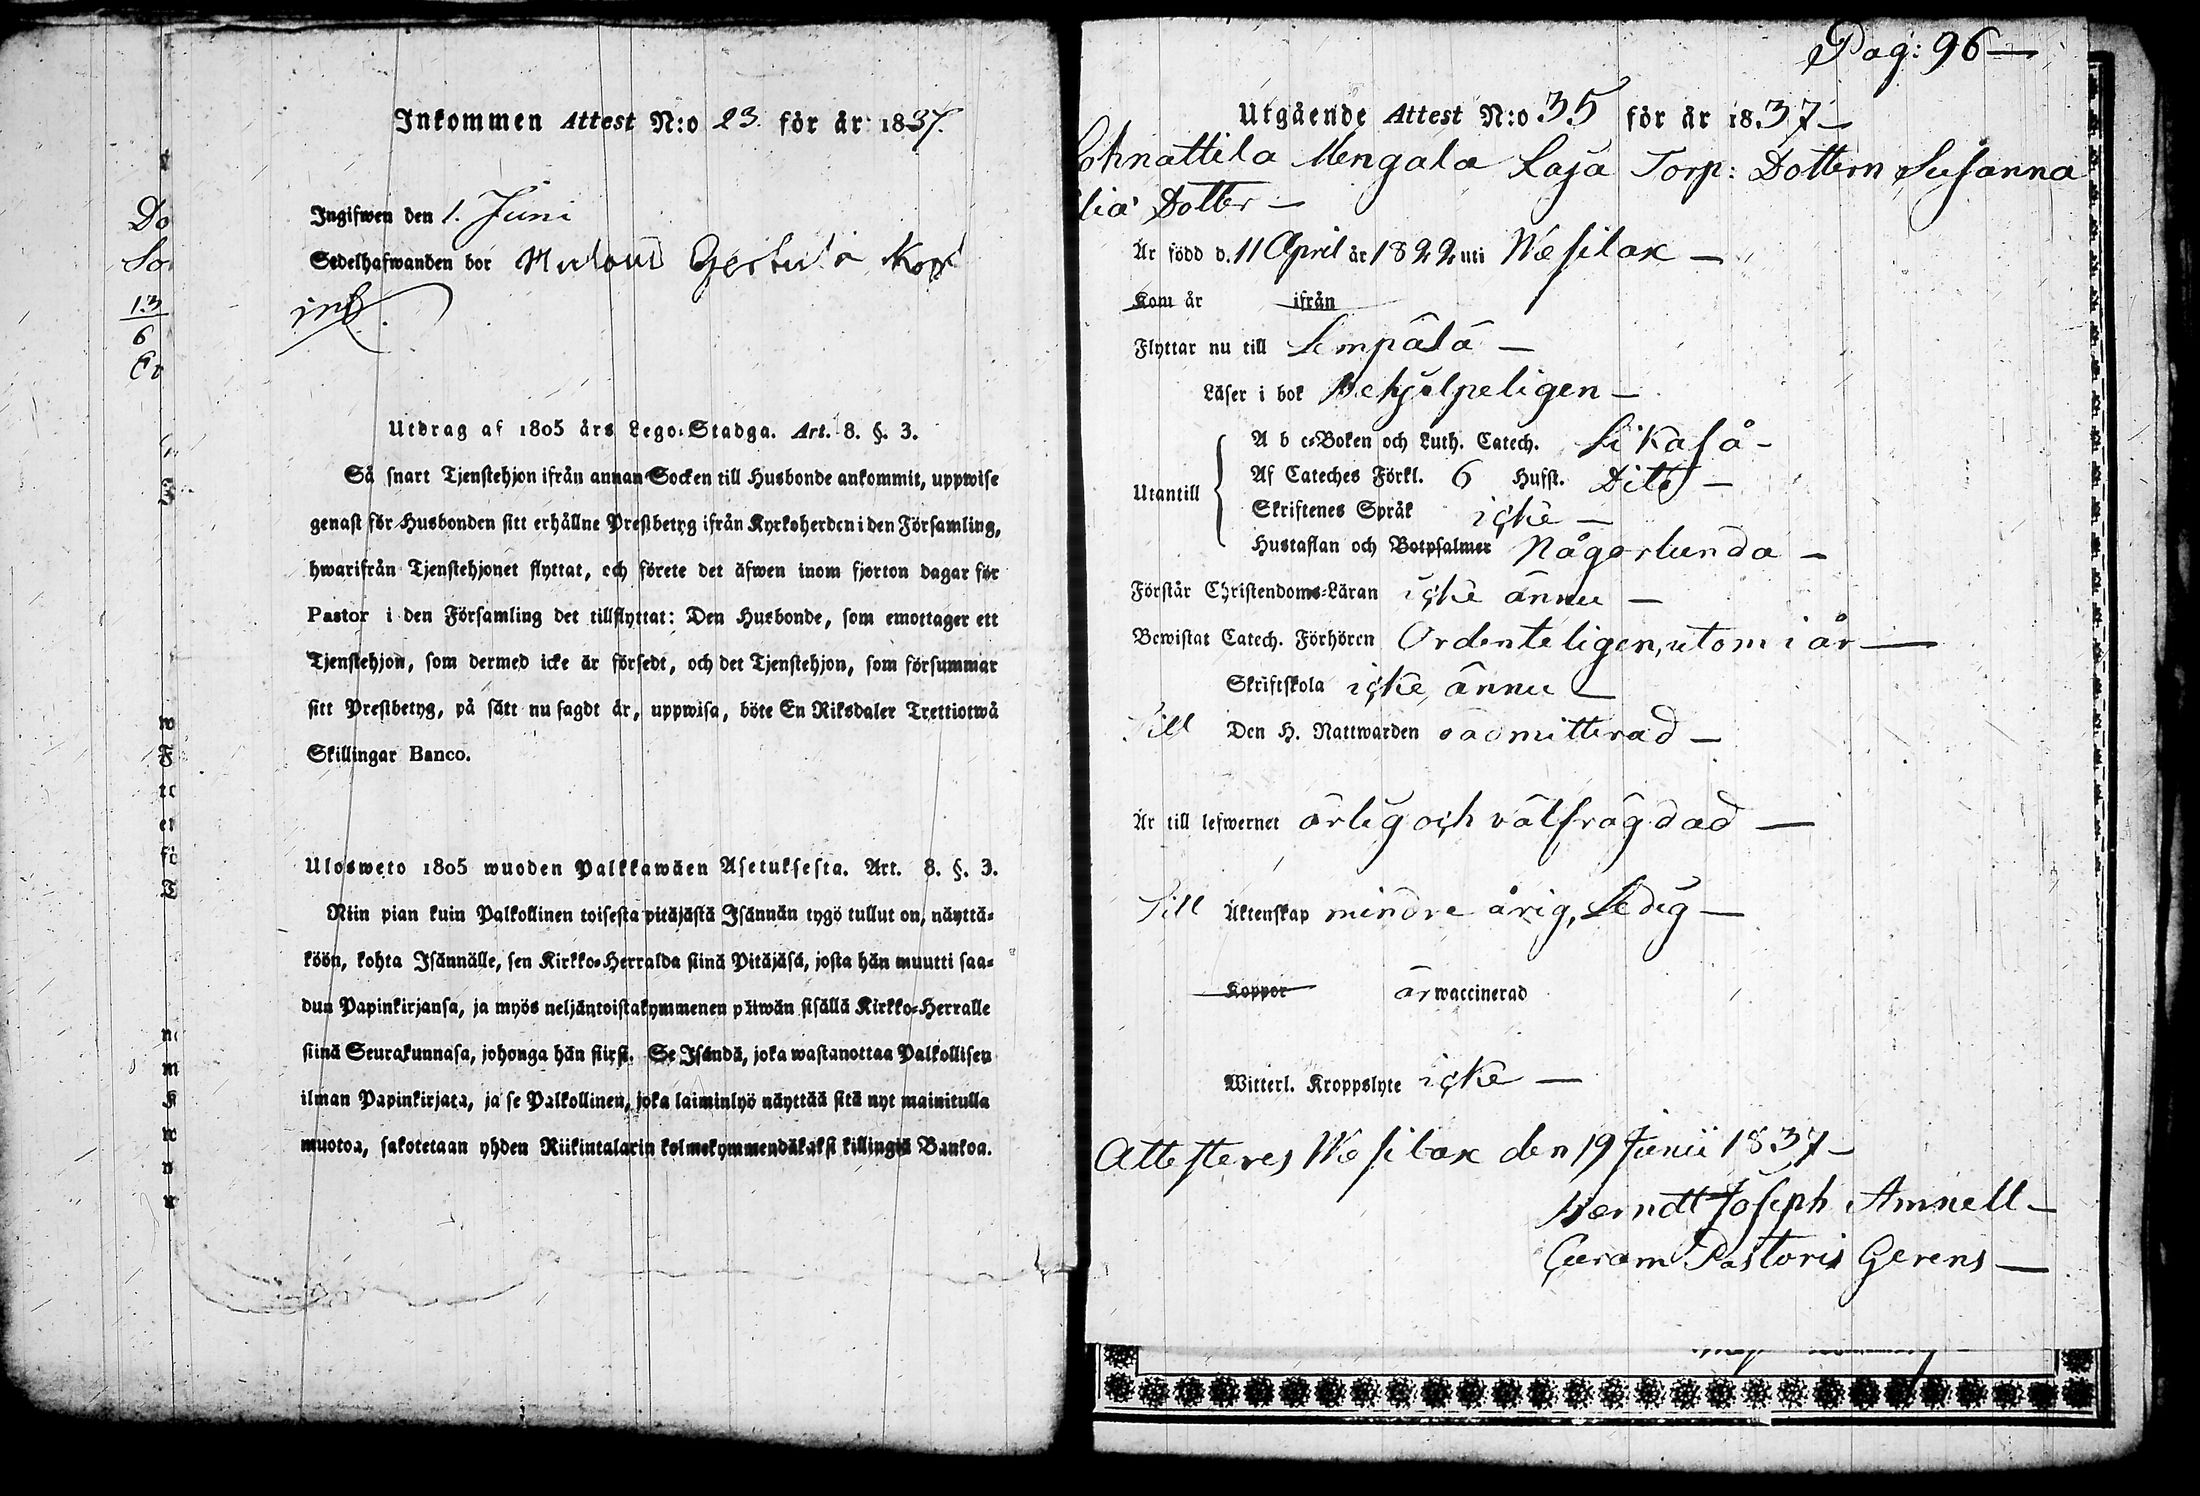 Inkommen Attest N:o 23. för år 1837.
Ingifwen den 1. Juni
Sedelhafwanden bor
inh.
Utdrag af 1805 års Lego-Stadga. Art. 8. §. 3.
Så snart Tjenstehjon ifrån annan Socken till Husbonde ankommit, uppwise
genast för Husbonden sitt erhållne Prestbetyg ifrån Kyrkoherden i den Församling,
hwarifrån Tjenstehjonet flyttat, och förete det äfwen inom fjorton dagar för
Pastor i den Församling det tillflyttat: Den Husbonde, som emottager ett
Tjenstehjon, som dermed icke är försedt, och det Tjenstehjon, som försummar
sitt Prestbetyg, på sätt nu sagdt är, uppwisa, böte En Riksdaler Trettiotwå
Skillingar Banco.
Ulosweto 1805 wuoden Palkkawäen Asetuksesta. Art. 8. §. 3.
Niin pian kuin Palkollinen toisesta pitäjästä Isännän tygö tullut on, näyttä-
köön, kohta Isännälle, sen Kirkko-Herralda siinä Pitäjäsä, josta hän muutti saa-
dun Papinkirjansa, ja myös neljäntoistakymmenen päiwän sisällä Kirkko-Herralle
siinä Seurakunnasa, johonga hän siirsi. Se Isändä, joka wastanottaa Palkollisen
ilman Papinkirjata, ja se Palkollinen, joka laiminlyö näyttää sitä nyt mainitulla
muotoa, sakotetaan yhden Riikintalarin kolmekymmendäkaksi killingiä Bankoa.
Pag: 96
Utgående Attest N:o 35 för år 1837
Mengala Kaja Torp: Dottern Susanna
Dotter
Är född d. 11 April år 1822 uti Wesilax
Kom år ifrån
Flyttar nu till Lempälä
Läser i bok Behjelpeligen
Utantill
A b c-Boken och Luth. Catech. Likaså
Af Cateches Förkl. 6 Hufst. Dito
Skriftenes Språk icke
Hustaflan och Botpsalmer Någorlunda
Förstår Christendoms-Läran icke ännu
Bewistat Catech. Förhören Ordenteligen, utom i år
Skriftskola icke ännu
Till Den H. Nattwarden oadmitterad
Är till lefwernet ärlig och välfrägdad
Till Äktenskap mindre årig, Ledig
Koppor är waccinerad
Witterl. Kroppslyte icke
Attesteres Wesilax den 19 Junii 1837
Berndt Joseph Amnell
Curam Pastoris Gerens